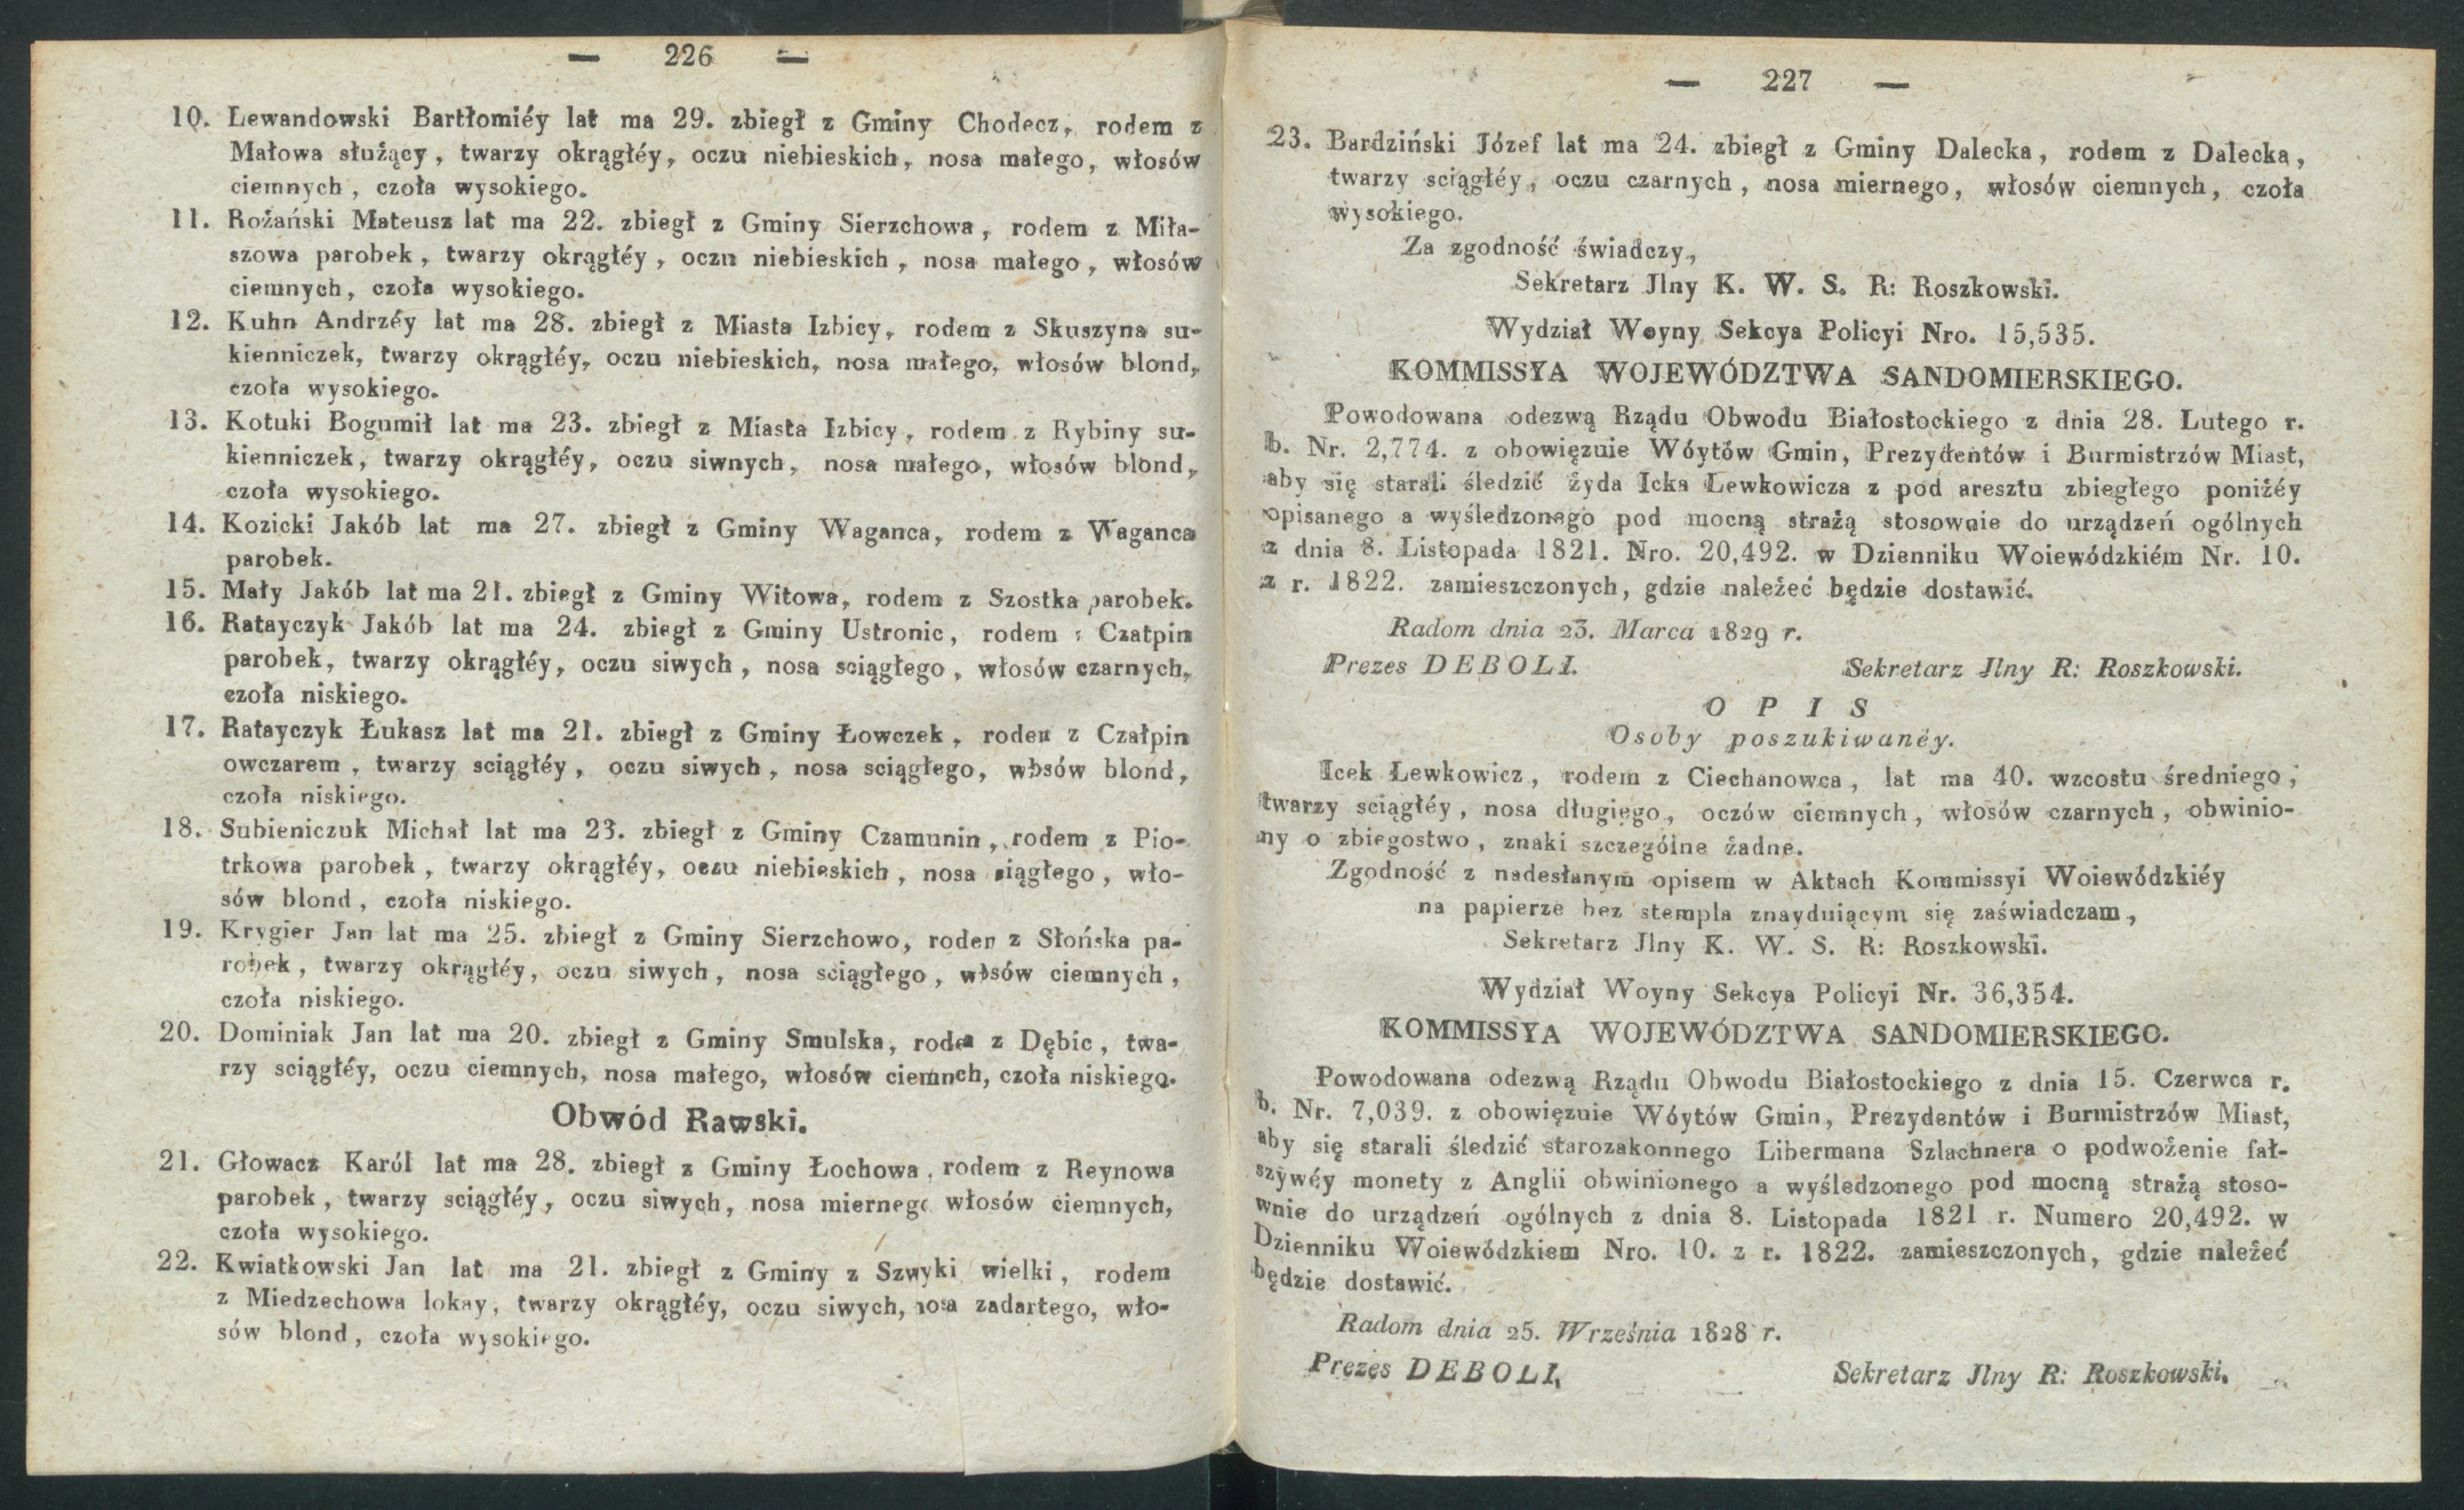 — 226 —
10. Lewandowski Bartłomiéy lat ma 29. zbiegł z Gminy Chodecz, rodem z
Małowa służący, twarzy okrągłéy, oczu niebieskich, nosa małego, włosów
ciemnych, czoła wysokiego.
11. Rożański Mateusz lat ma 22. zbiegł z Gminy Sierzchowa, rodem z Miła-
szowa parobek, twarzy okrągłéy, oczu niebieskich, nosa małego, włosów
ciemnych, czoła wysokiego.
12. Kuhn Andrzéy lat ma 28. zbiegł z Miasta Izbicy, rodem z Skuszyna su-
kienniczek, twarzy okrągłéy, oczu niebieskich, nosa małego, włosów blond,
czoła wysokiego.
13. Kotuki Bogumił lat ma 23. zbiegł z Miasta Izbicy, rodem z Rybiny su-
kienniczek, twarzy okrągłéy, oczu siwnych, nosa małego, włosów blond,
czoła wysokiego.
14. Kozicki Jakób lat ma 27. zbiegł z Gminy Waganca, rodem z Waganca
parobek.
15. Mały Jakób lat ma 21. zbiegł z Gminy Witowa, rodem z Szostka parobek.
16. Ratayczyk Jakób lat ma 24. zbiegł z Gminy Ustronic, rodem z Czatpin
parobek, twarzy okrągłéy, oczu siwych, nosa sciągłego, włosów czarnych,
czoła niskiego.
17. Ratayczyk Łukasz lat ma 21. zbiegł z Gminy Łowczek, rodem z Czałpin
owczarem, twarzy sciągłéy, oczu siwych, nosa sciągłego, włosów blond,
czoła niskiego.
18. Subieniczuk Michał lat ma 23. zbiegł z Gminy Czamunin, rodem z Pio-
trkowa parobek, twarzy okrągłéy, oczu niebieskich, nosa siągłego, wło-
sów blond, czoła niskiego.
19. Krygier Jan lat ma 25. zbiegł z Gminy Sierzchowo, rodem z Słońska pa-
robek, twarzy okrągłéy, oczu siwych, nosa sciągłego, włosów ciemnych,
czoła niskiego.
20. Dominiak Jan lat ma 20. zbiegł z Gminy Smulska, rodem z Dębic, twa-
rzy sciągłéy, oczu ciemnych, nosa małego, włosów ciemnch, czoła niskiego.
Obwód Rawski.
21. Głowacz Karól lat ma 28. zbiegł z Gminy Łochowa, rodem z Reynowa
parobek, twarzy sciągłéy, oczu siwych, nosa miernego włosów ciemnych,
czoła wysokiego.
22. Kwiatkowski Jan lat ma 21. zbiegł z Gminy z Szwyki wielki, rodem
z Miedzechowa lokay, twarzy okrągłéy, oczu siwych, nosa zadartego, wło-
sów blond, czoła wysokiego.
— 227 —
23. Bardziński Józef lat ma 24. zbiegł z Gminy Dalecka, rodem z Dalecka,
twarzy sciągłéy, oczu czarnych, nosa miernego, włosów ciemnych, czoła
wysokiego.
Za zgodność świadczy,
Sekretarz Jlny K. W. S. R: Roszkowski.
Wydział Woyny Sekcya Policyi Nro. 15,535.
KOMMISSYA WOJEWÓDZTWA SANDOMIERSKIEGO.
Powodowana odezwą Rządu Obwodu Białostockiego z dnia 28. Lutego r.
b. Nr. 2,774. z obowięzuie Wóytów Gmin, Prezydentów i Burmistrzów Miast,
aby się starali śledzić żyda Icka Lewkowicza z pod aresztu zbiegłego poniżéy
opisanego a wyśledzonego pod mocną strażą stosownie do urządzeń ogólnych
z dnia 8. Listopada 1821. Nro. 20,492. w Dzienniku Woiewódzkiém Nr. 10.
z r. 1822. zamieszczonych, gdzie należeć będzie dostawić.
Radom dnia 23. Marca 1829 r.
Prezes DEBOLI. Sekretarz Jlny R: Roszkowski.
O P I S
Osoby poszukiwanéy.
Icek Lewkowicz, rodem z Ciechanowca, lat ma 40. wzcostu średniego,
twarzy sciągłéy, nosa długiego, oczów ciemnych, włosów czarnych, obwinio-
ny o zbiegostwo, znaki szczególne żadne.
Zgodność z nadesłanym opisem w Aktach Kommissyi Woiewódzkiéy
na papierze bez stempla znayduiącym się zaświadczam,
Sekretarz Jlny K. W. S. R: Roszkowski.
Wydział Woyny Sekcya Policyi Nr. 36,354.
KOMMISSYA WOJEWÓDZTWA SANDOMIERSKIEGO.
Powodowana odezwą Rządu Obwodu Białostockiego z dnia 15. Czerwca r.
b. Nr. 7,039. z obowięzuie Wóytów Gmin, Prezydentów i Burmistrzów Miast,
aby się starali śledzić starozakonnego Libermana Szlachnera o podwożenie fał-
szywéy monety z Anglii obwinionego a wyśledzonego pod mocną strażą stoso-
wnie do urządzeń ogólnych z dnia 8. Listopada 1821 r. Numero 20,492. w
Dzienniku Woiewódzkiem Nro. 10. z r. 1822. zamieszczonych, gdzie należeć
będzie dostawić.
Radom dnia 25. Września 1828 r.
Prezes DEBOLI, Sekretarz Jlny R: Roszkowski.